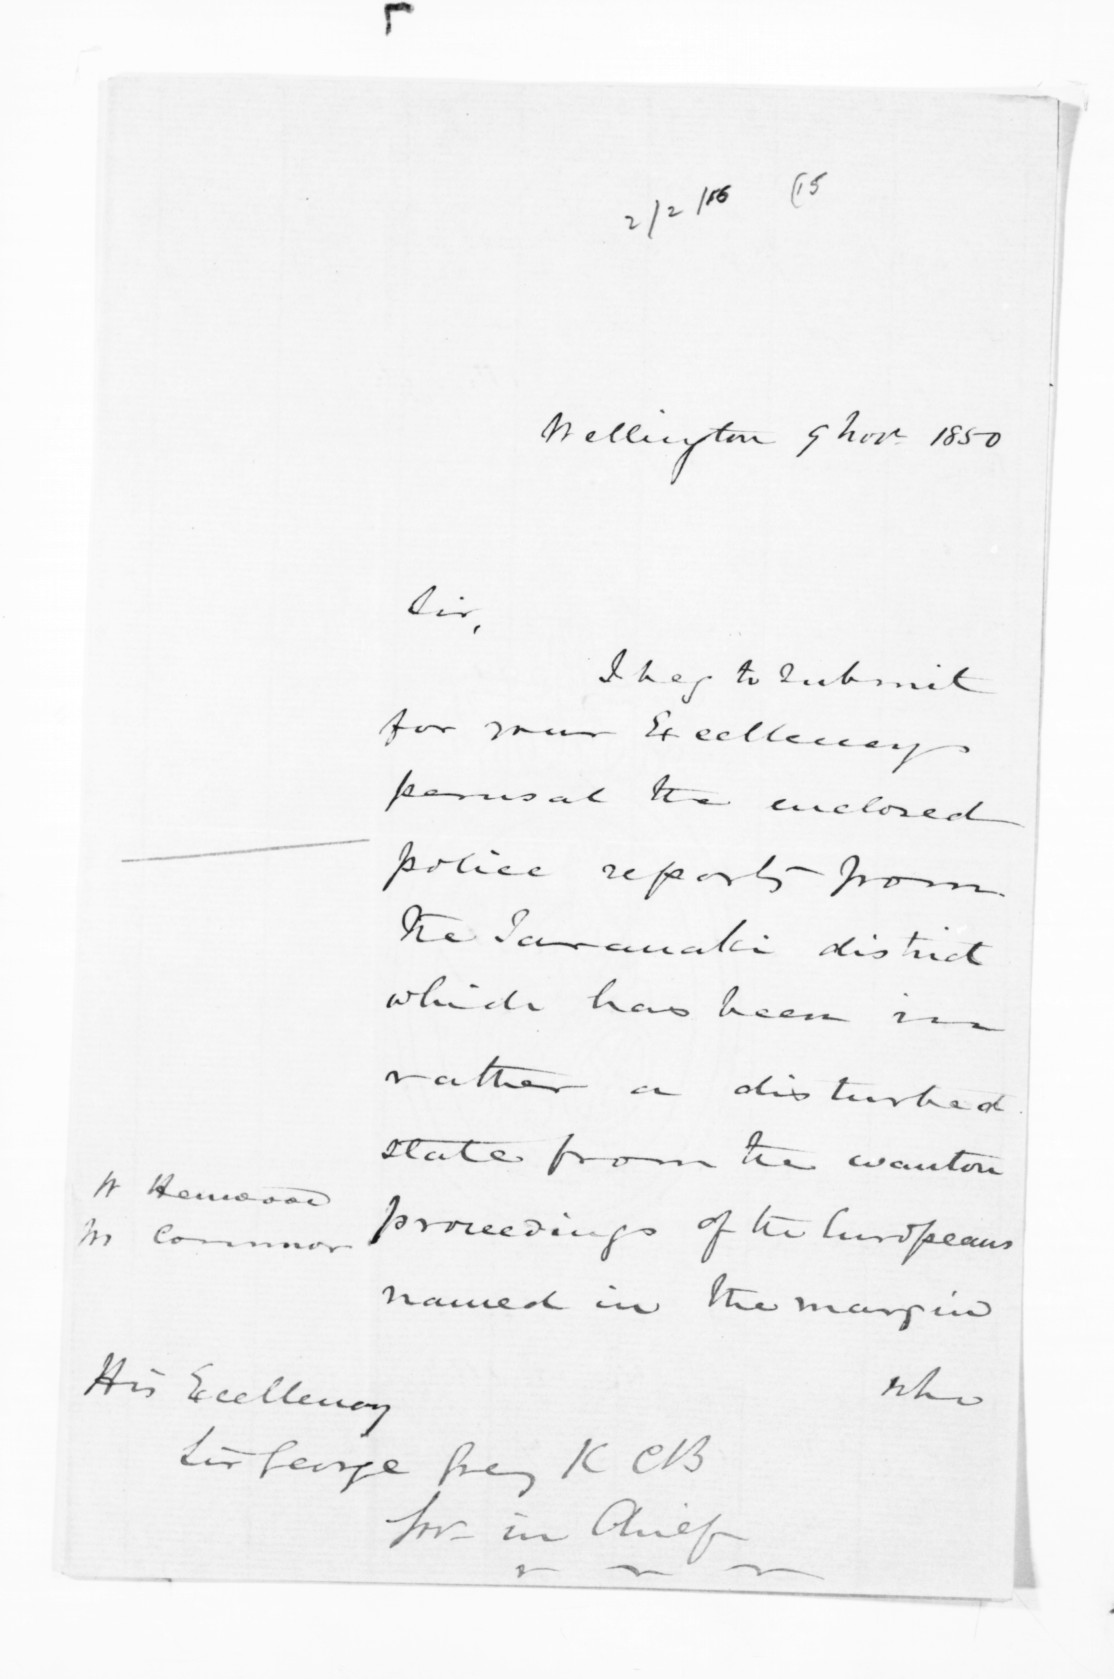 2/2/16 (15
Wellington 9 Novr. 1850
Sir,
I beg to submit
for your Excellency's
perusal the enclosed
police reports from
the Taranaki district
which has been in
rather a disturbed
state from the wanton
proceedings of the Europeans
named in the margin
W Henwood
M Connor
who
His Excellency
Sir George Grey K C B
Gov. in Chief